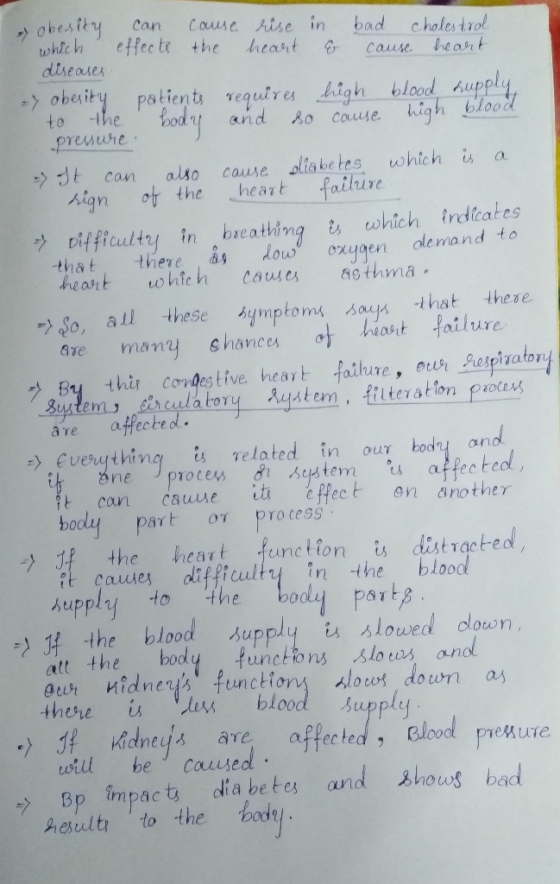 => obesity can cause rise in bad cholestrol
which effects the heart & cause heart
diseases.
=> obesity patients requires high blood supply
to the body and so cause high blood
pressure.
=> It can also cause diabetes which is a
sign of the heart failure
=> Difficulty in breathing is which indicates
that there is low oxygen demand to
heart which causes asthma.
=> So, all these symptoms says that there
are many chances of heart failure
=> By this congestive heart failure, our respiratory
system, circulatory system, filteration process
are affected.
=> Everything is related in our body and
if one process or system is affected,
it can cause its effect on another
body part or process.
=> If the heart function is distracted,
it causes difficulty in the blood
supply to the body parts.
=> If the blood supply is slowed down,
all the body functions slows and
our kidney's functions slows down as
there is less blood supply.
=> If kidney's are affected, Blood pressure
will be caused.
=> Bp impacts diabetes and shows bad
results to the body.